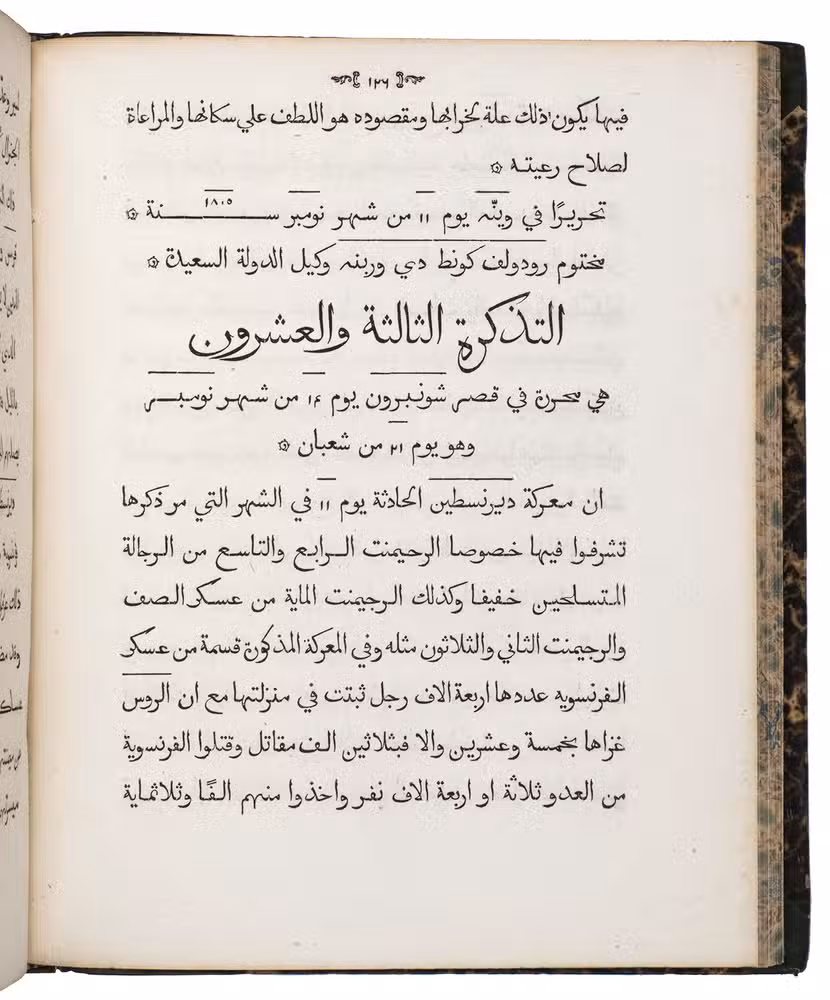 ١٢٦
فيها يكون ذلك علة لخرابها ومقصوده هو اللطف علي سكانها والمراعاة
لصلاح رعيته
تحريرًا في وينّه يوم ١١ من شهر نومبر سنة ١٨٠٥
مختوم رودولف كونط دي وربنه وكيل الدولة السعيدة
التذكرة الثالثة والعشرون
هي محررة في قصر شونبرون يوم ١٤ من شهر نومبر
وهو يوم ٢١ من شعبان
ان معركة ديرنسطين الحادثة يوم ١١ في الشهر التي مر ذكرها
تشرفوا فيها خصوصا الرجيمنت الرابع والتاسع من الرجالة
المتسلحين خفيفا وكذلك الرجيمنت الماية من عسكر الصف
والرجيمنت الثاني والثلاثون مثله وفي المعركة المذكورة قسمة من عسكر
الفرنسويه عددها اربعة الاف رجل ثبتت في منزلتها مع ان الروس
غزاها بخمسة وعشرين والا فبثلاثين الف مقاتل وقتلوا الفرنسوية
من العدو ثلاثة او اربعة الاف نفر واخذوا منهم الفًا وثلاثماية